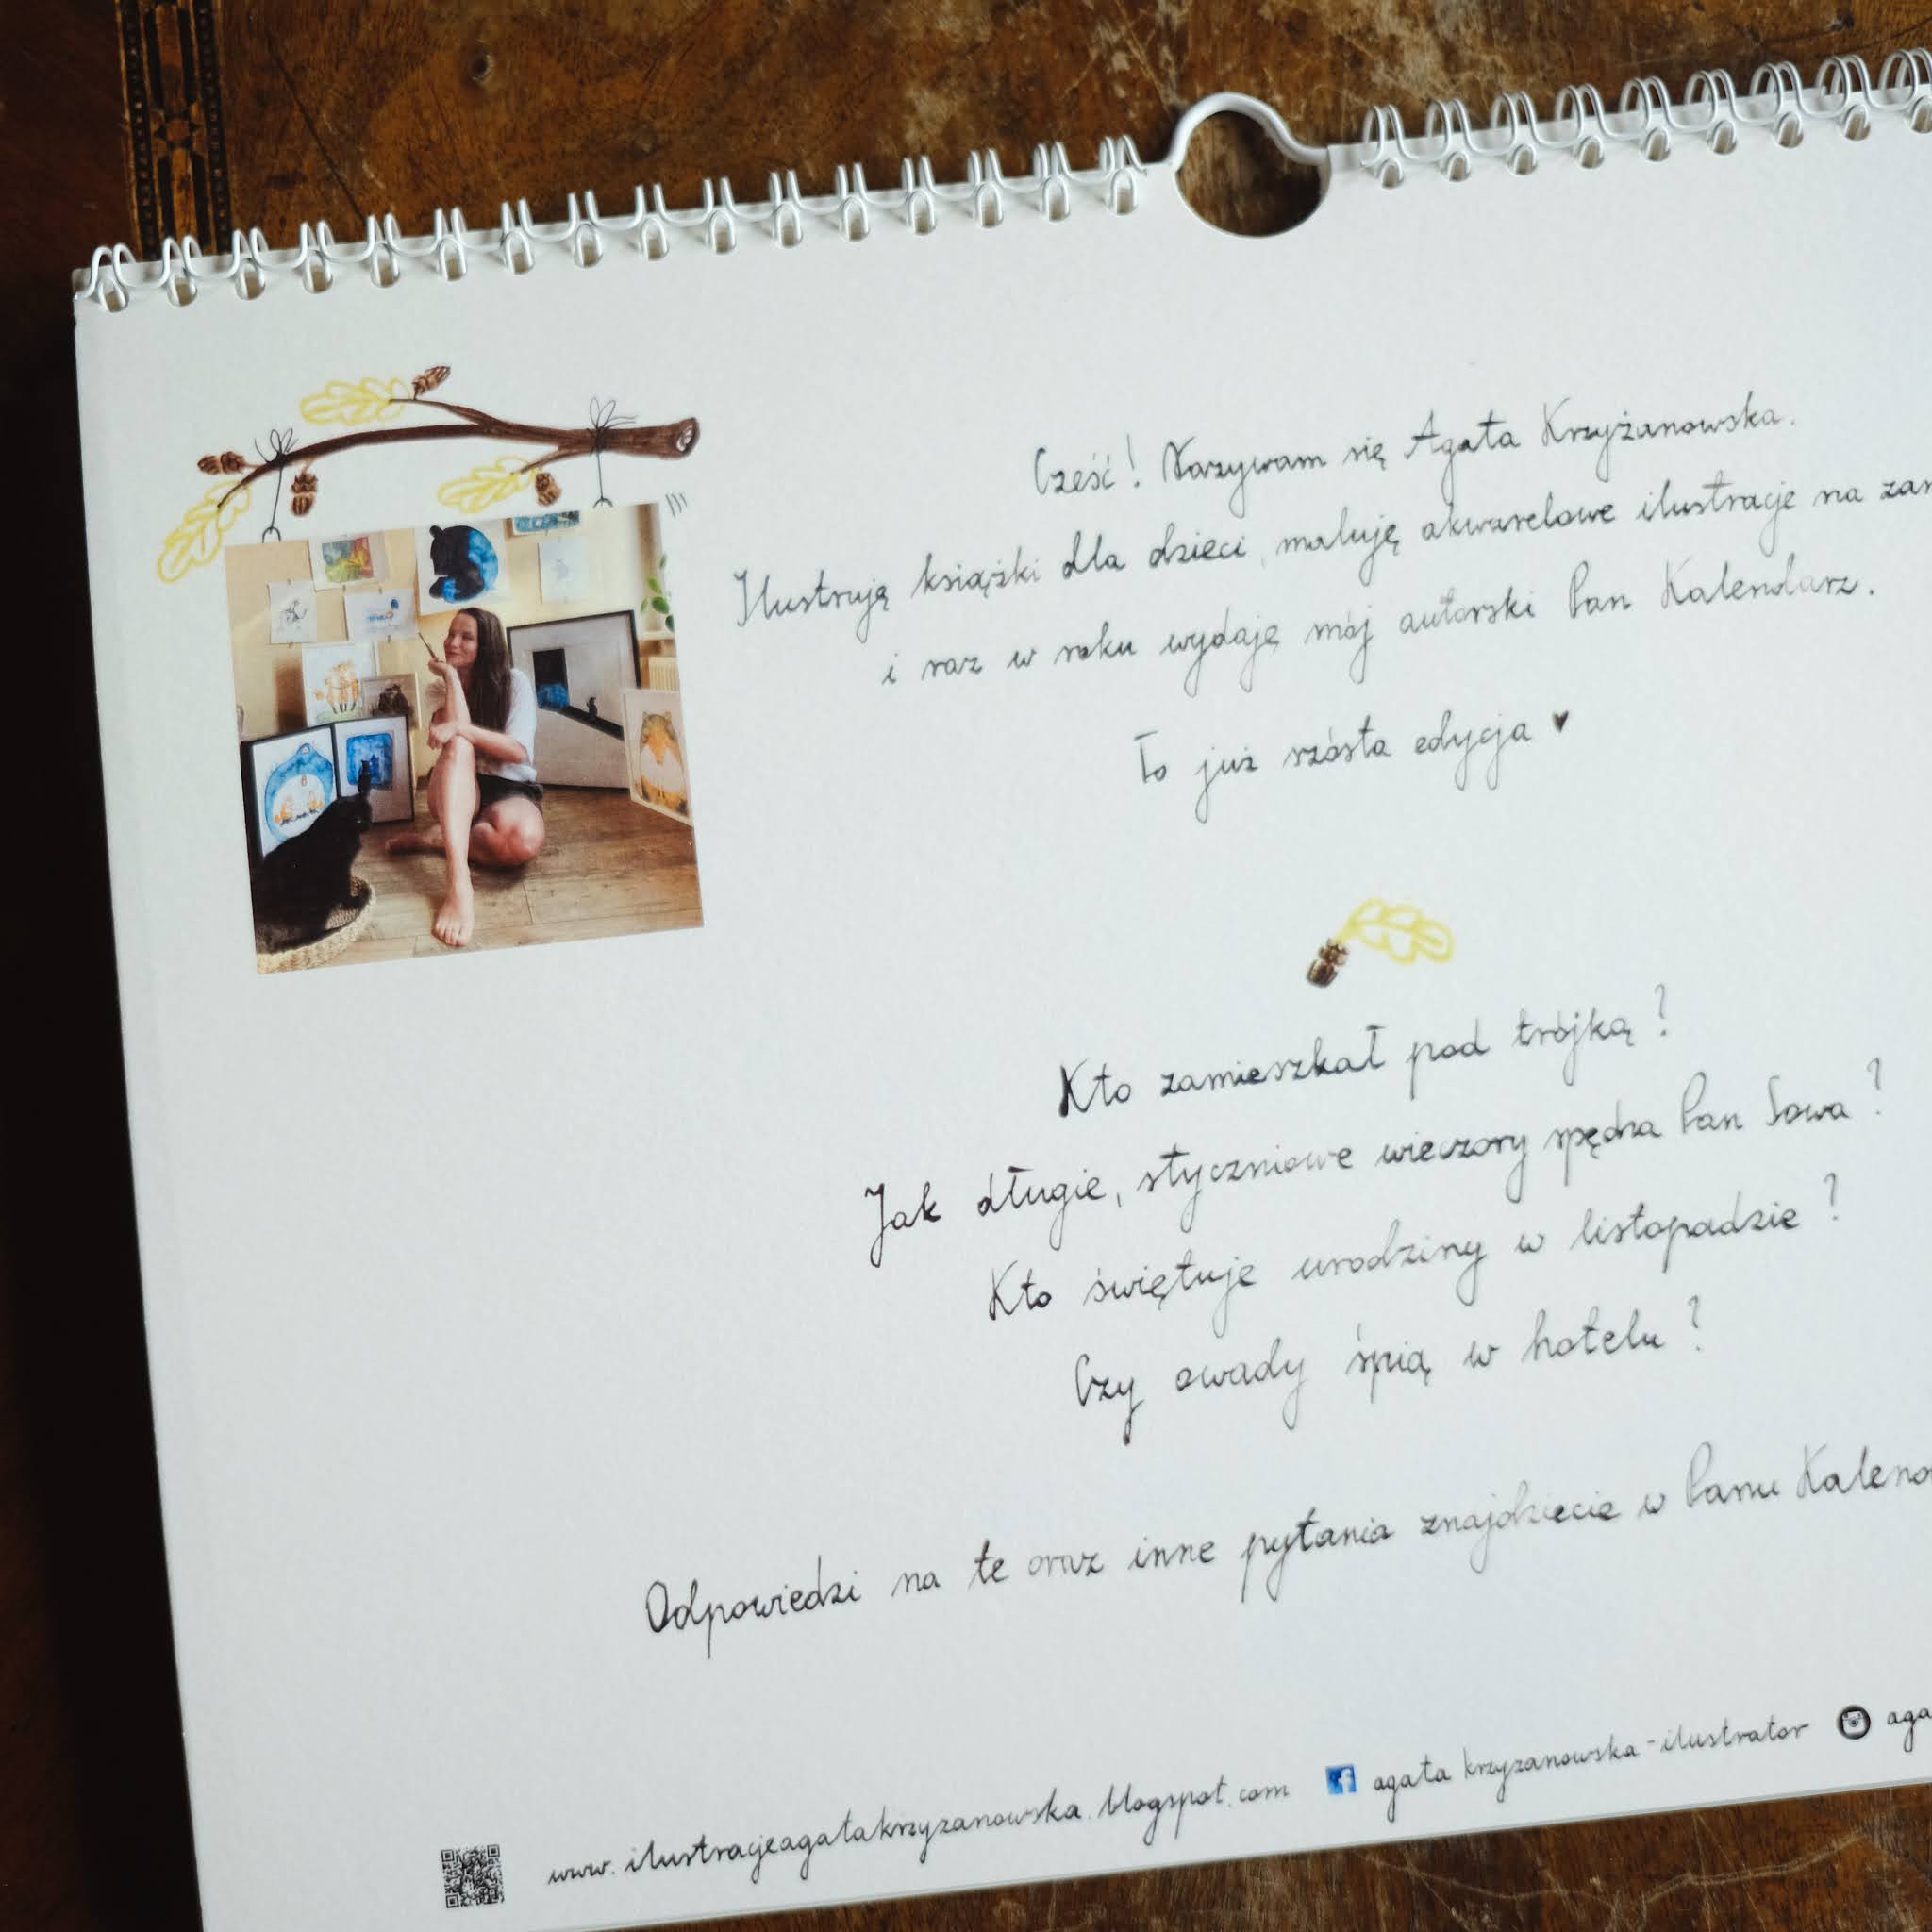 Cześć! Nazywam się Agata Krzyżanowska.
Ilustruję książki dla dzieci, maluję akwarelowe ilustracje na
i raz w roku wydaję mój autorski Pan Kalendarz.
To już szósta edycja ♥
Kto zamieszkał pod trójką?
Jak długie, styczniowe wieczory spędza Pan Sowa?
Kto świętuje urodziny w listopadzie?
Czy owady śpią w hotelu?
Odpowiedzi na te oraz inne pytania znajdziecie w Panu
www.ilustracjeagatakrzyzanowska.blogspot.com agata krzyzanowska-ilustrator